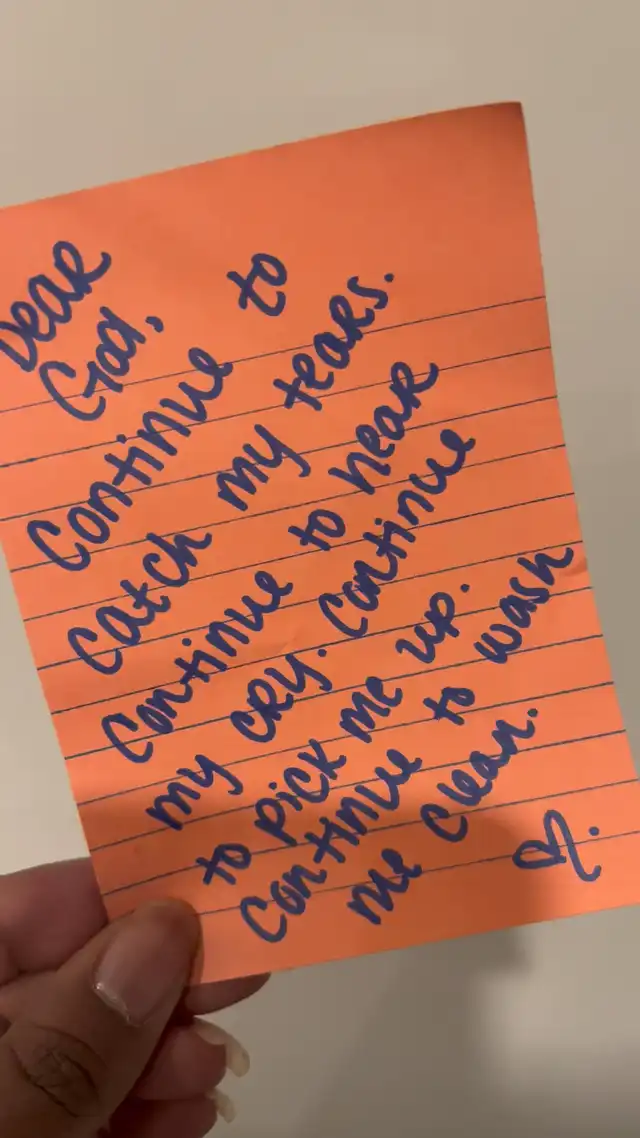 Dear
God,
Continue to
catch my tears.
Continue to hear
my cry. Continue
to pick me up.
Continue to wash
me clean.